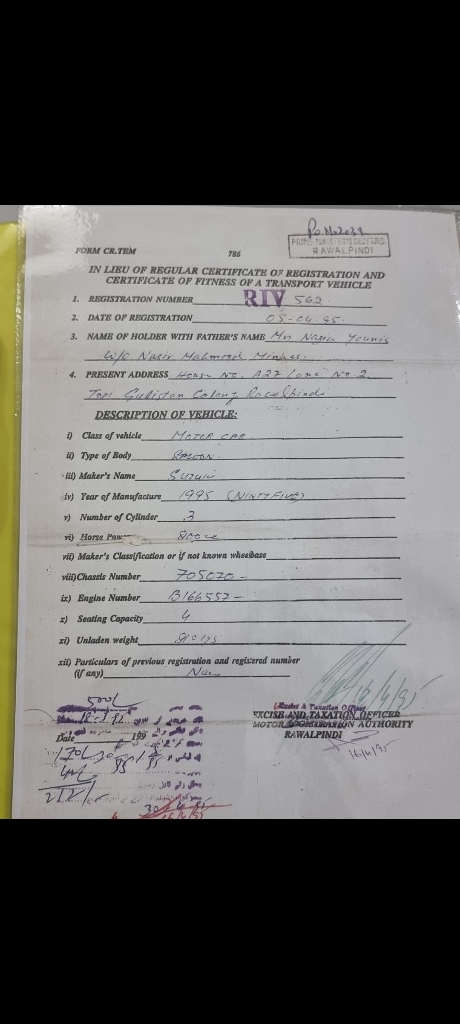 Po No 2039
PRIME MINISTER'S
RAWALPINDI
FORM CR.TEM 786
IN LIEU OF REGULAR CERTIFICATE OF REGISTRATION AND
CERTIFICATE OF FITNESS OF A TRANSPORT VEHICLE
1. REGISTRATION NUMBER RIV 562
2. DATE OF REGISTRATION 05-04-95
3. NAME OF HOLDER WITH FATHER'S NAME Nazia Younis
W/O Nasir Mahmood
4. PRESENT ADDRESS House No. A27 Lane No 2
Topi Gulistan Colony Rawalpindi
DESCRIPTION OF VEHICLE:
i) Class of vehicle MOTOR CAR
ii) Type of Body SALOON
iii) Maker's Name Suzuki
iv) Year of Manufacture 1995 (NINTY FIVE)
v) Number of Cylinder 3
vi) Horse Power 800cc
vii) Maker's Classification or if not known wheelbase
viii) Chassis Number 705020
ix) Engine Number B166557
x) Seating Capacity 4
xi) Unladen weight
xii) Particulars of previous registration and registered number
(if any) New
16/4/95
Excise & Taxation Officer
EXCISE AND TAXATION OFFICER
MOTOR REGISTRATION AUTHORITY
RAWALPINDI
16/4/95
500/
Date 199